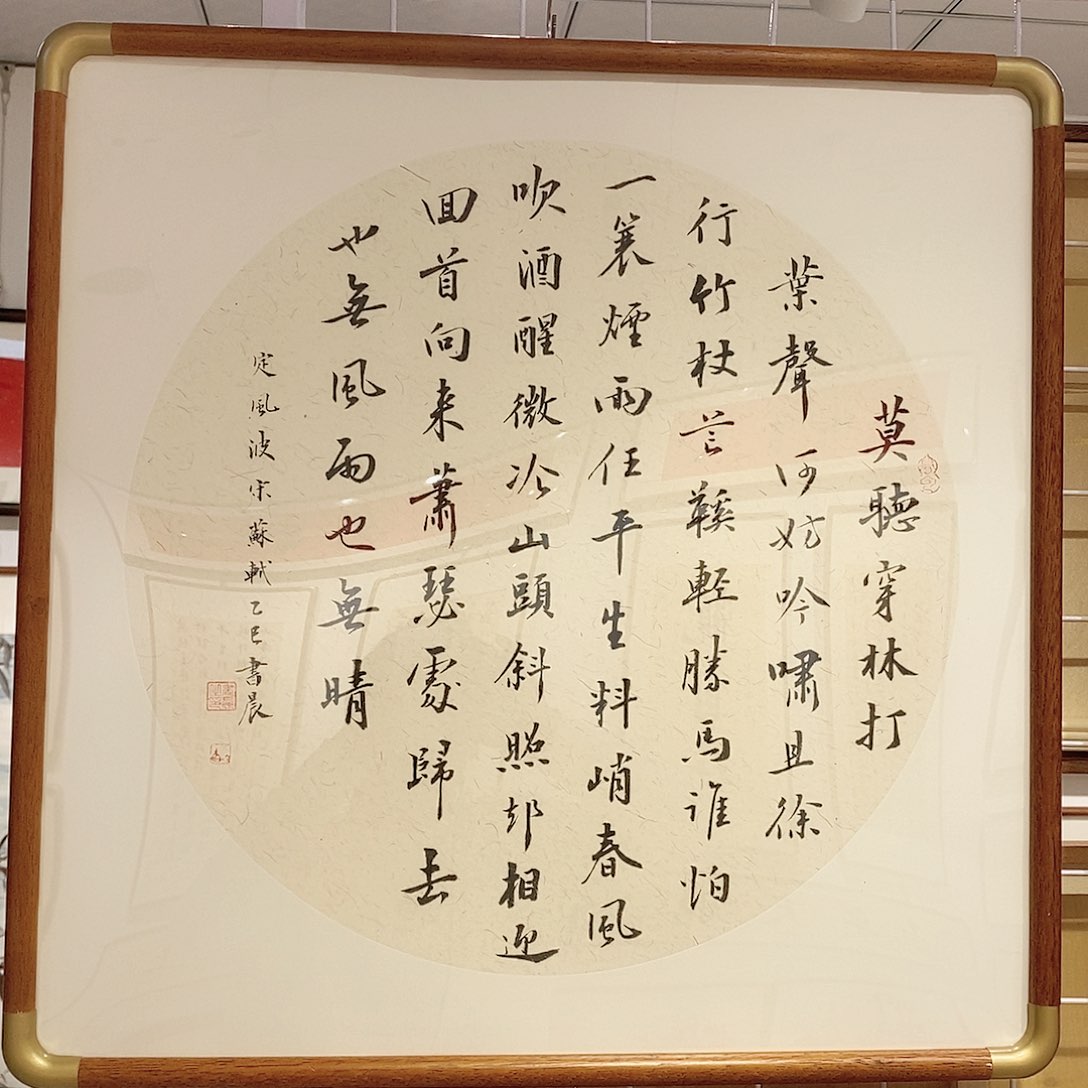 莫聽穿林打
葉聲何妨吟嘯且徐
行竹杖芒鞵輕勝馬誰怕
一蓑煙雨任平生料峭春風
吹酒醒微冷山頭斜照却相迎
回首向来蕭瑟處歸去
也無風雨也無晴
定風波宋蘇軾乙巳書晨